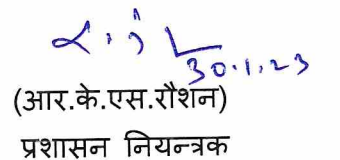 30.1.23
(आर.के.एस.रौशन)
प्रशासन नियन्त्रक